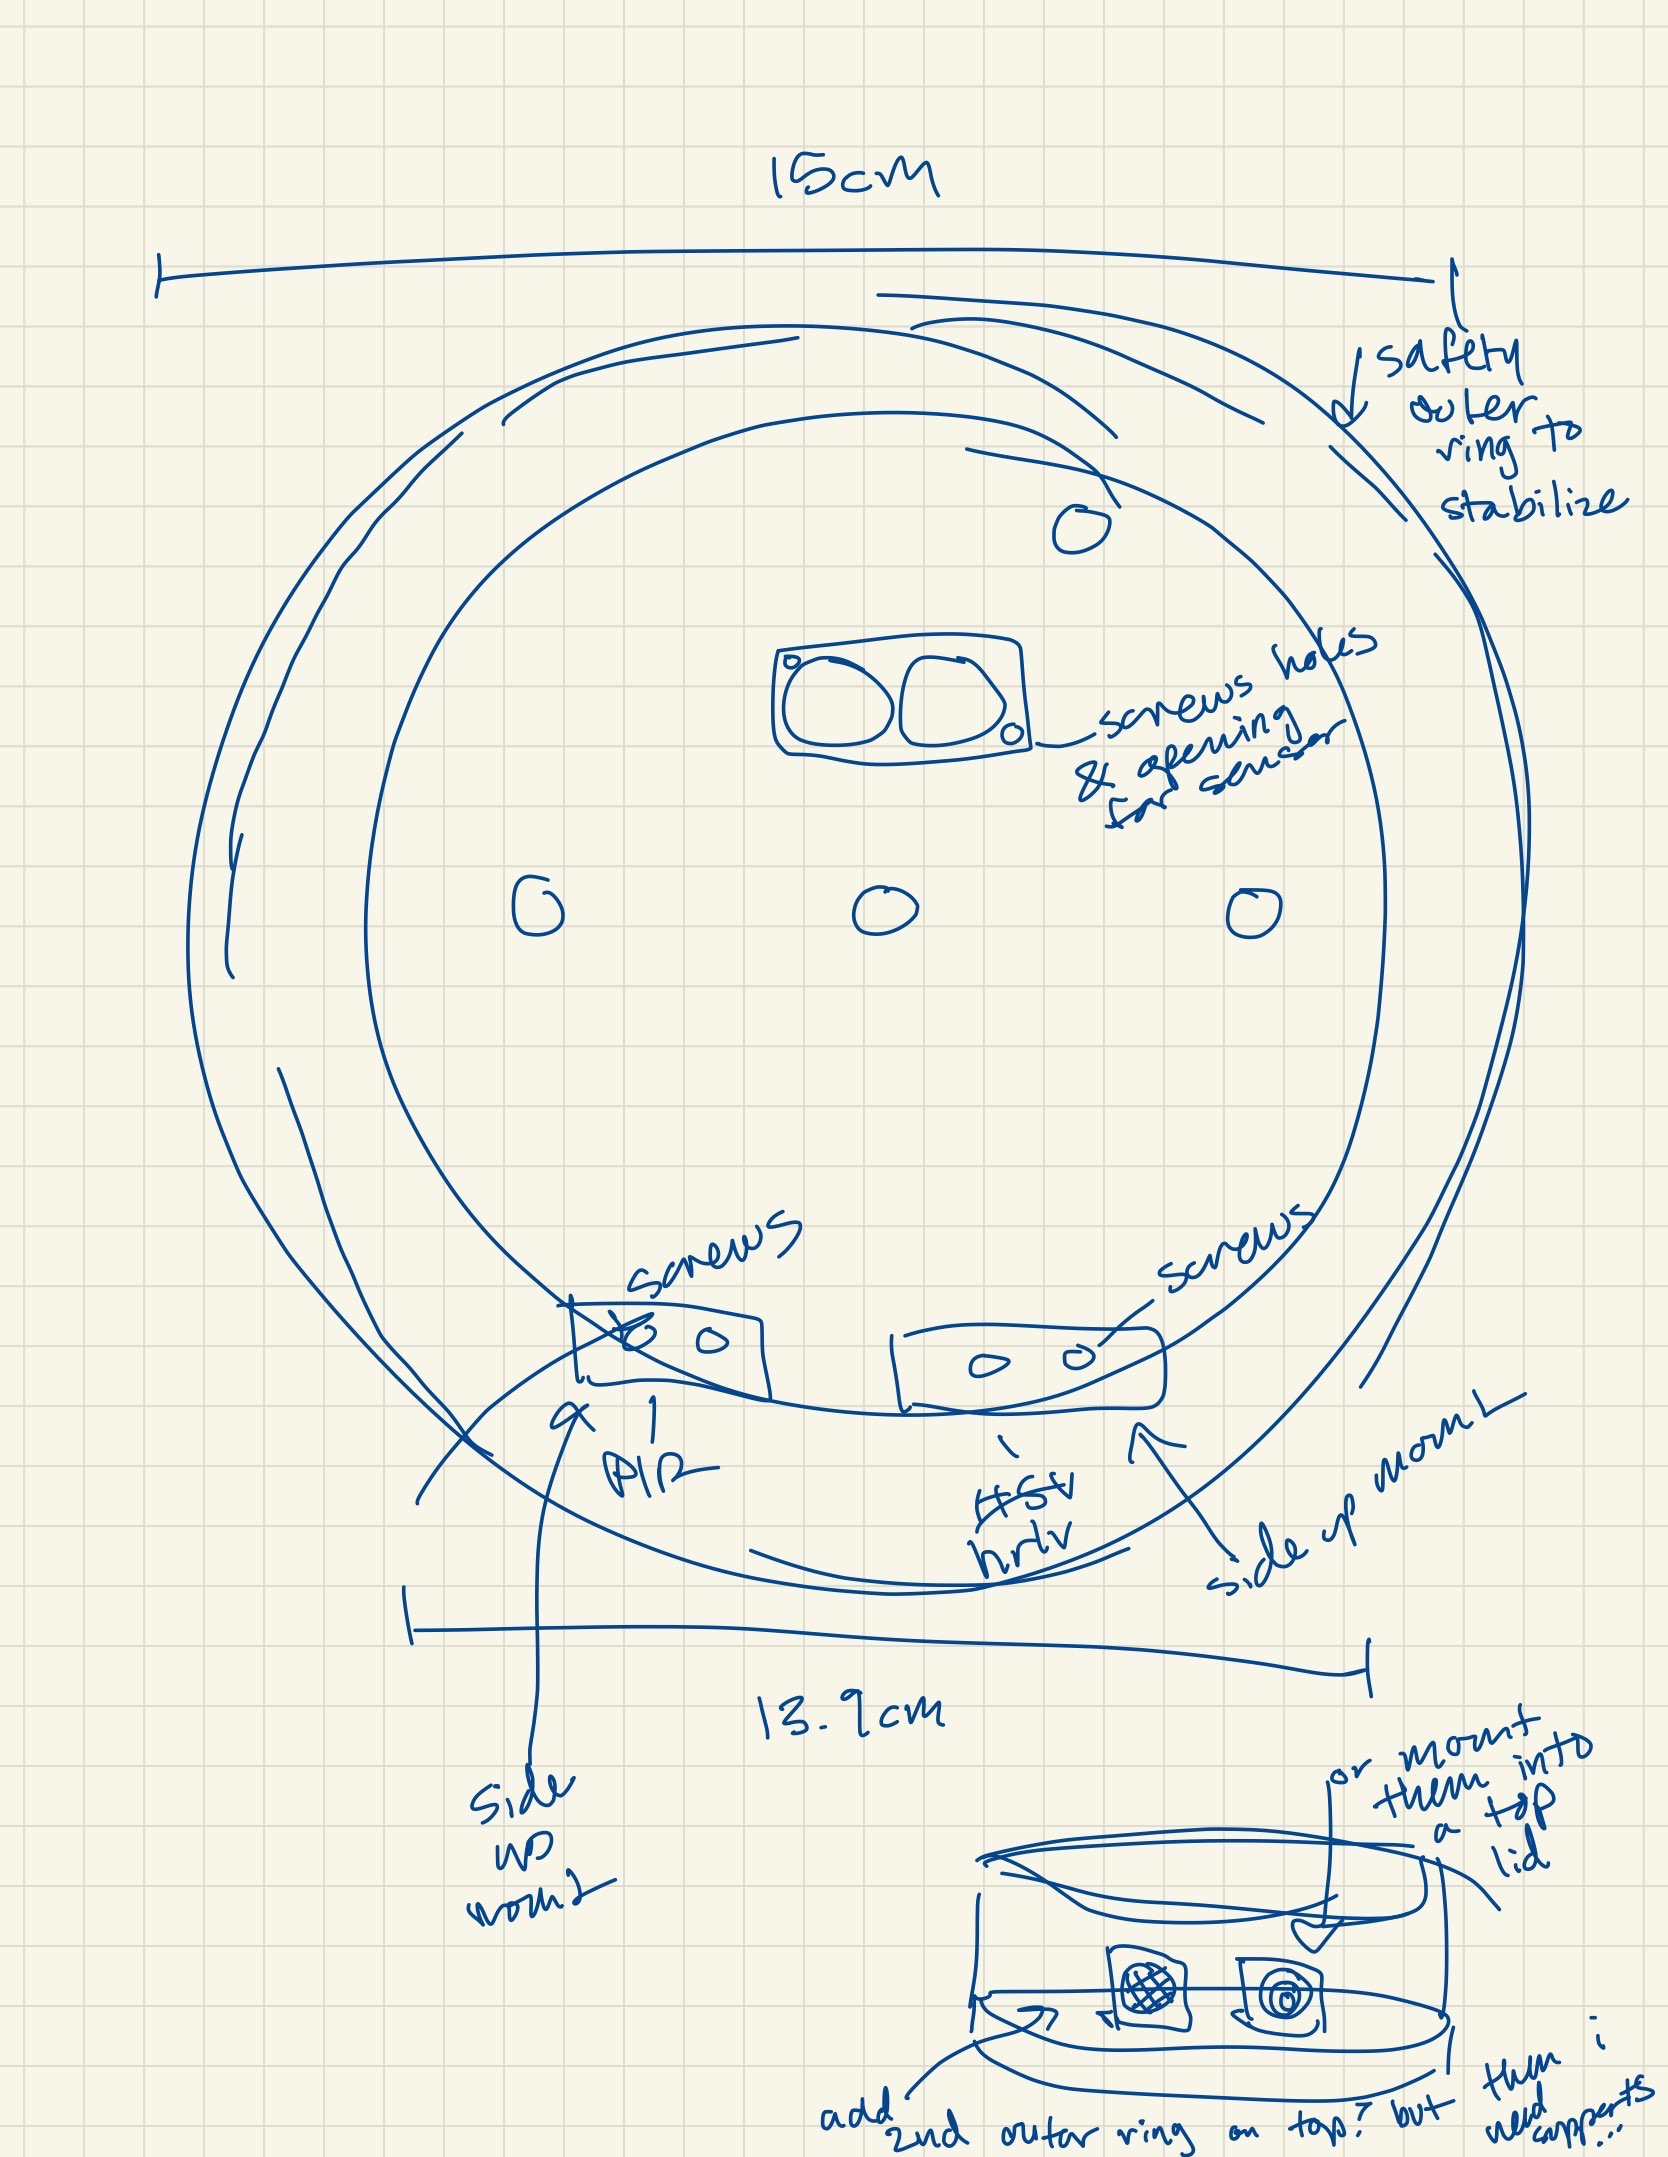 15cm
safety
outer
ring to
stabilize
screws holes
& opening
for sensor
screws
screws
PIR
side up mount
13.9cm
side
up
mount
or mount
them into
a top
lid
add 2nd outer ring on top? but then i
need supports...